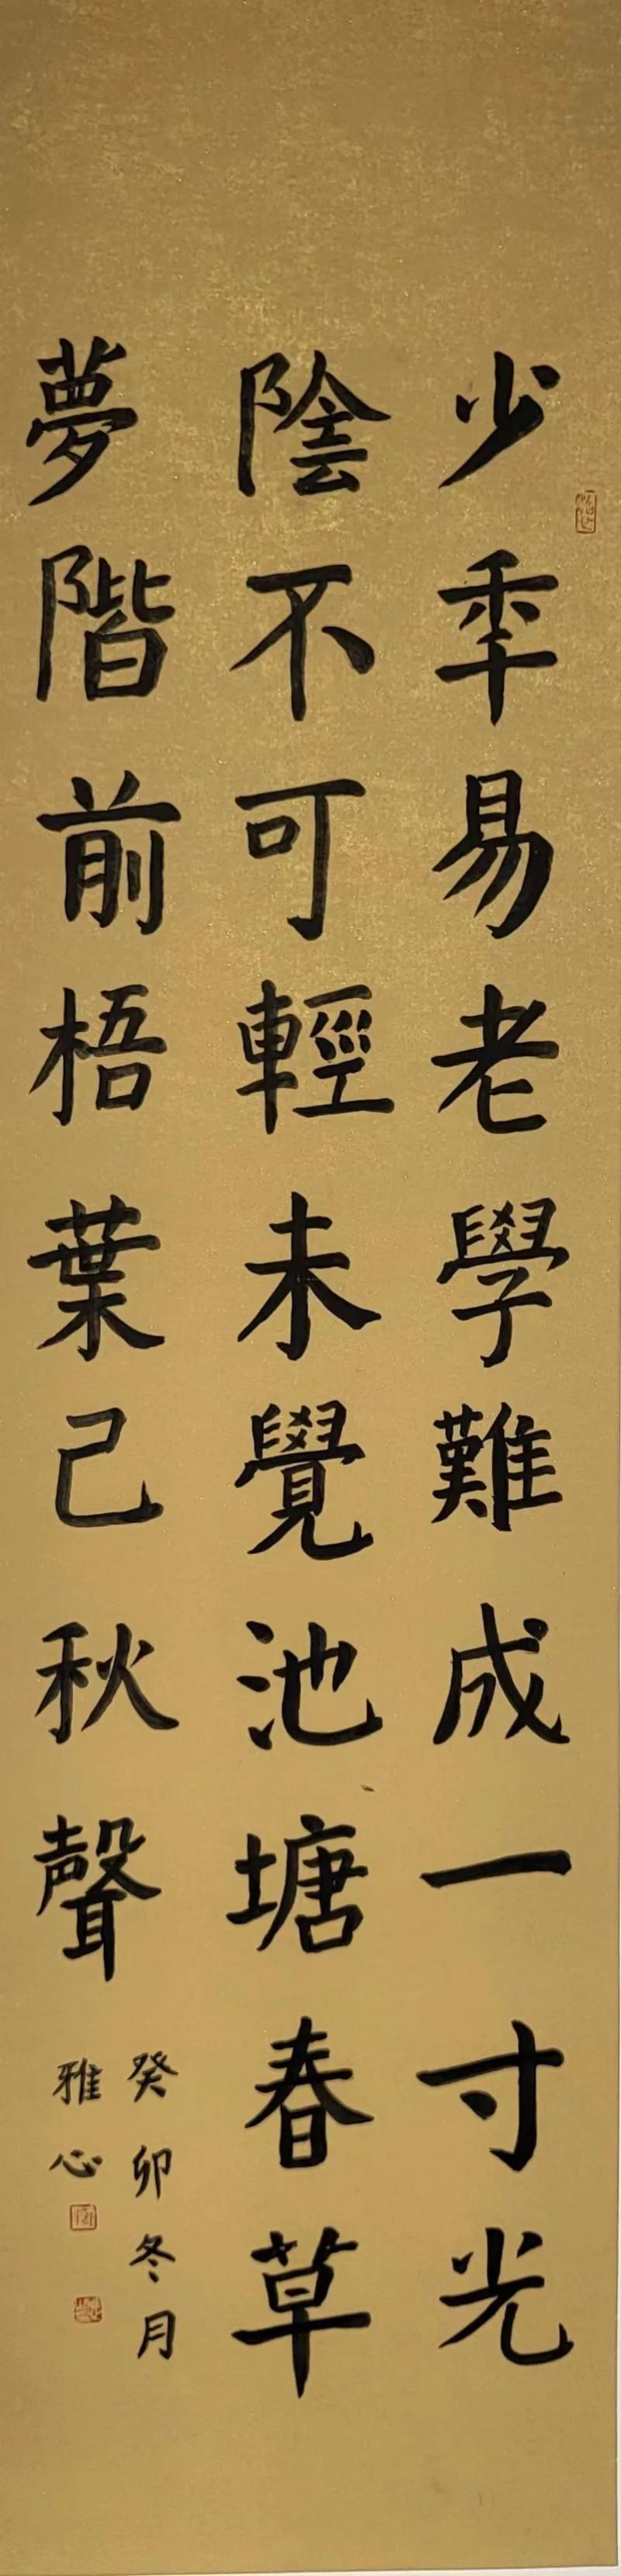 少秊易老學難成一寸光
陰不可輕未覺池塘春草
夢階前梧葉己秋聲
癸卯冬月
雅心